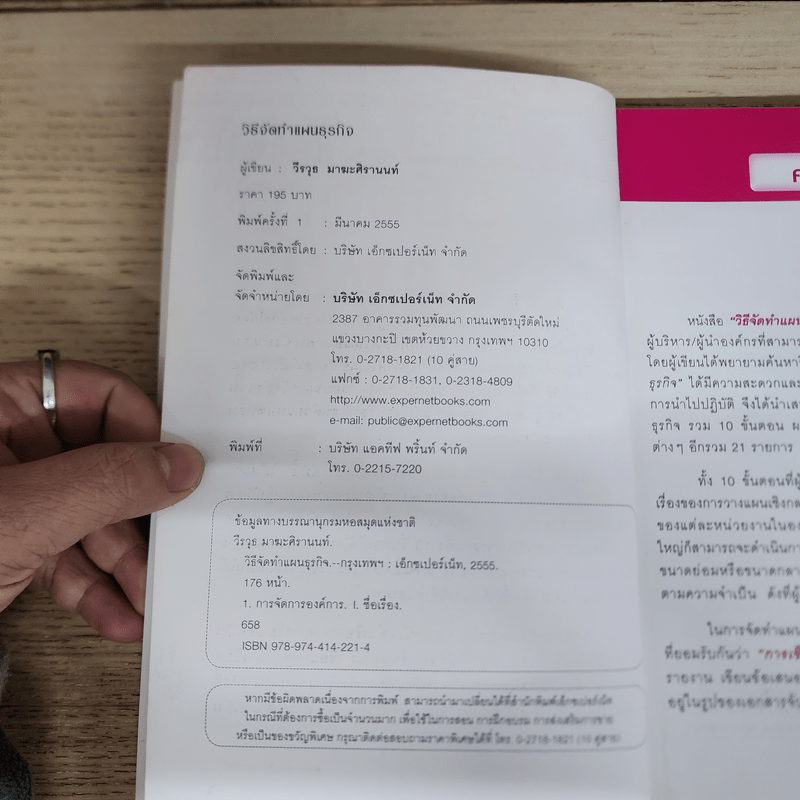 วิธีจัดทำแผนธุรกิจ
ผู้เขียน : วีรวุธ มาฆะศิรานนท์
ราคา 195 บาท
พิมพ์ครั้งที่ 1 : มีนาคม 2555
สงวนลิขสิทธิ์โดย : บริษัท เอ็กซเปอร์เน็ท จำกัด
จัดพิมพ์และ
จัดจำหน่ายโดย : บริษัท เอ็กซเปอร์เน็ท จำกัด
2387 อาคารรวมทุนพัฒนา ถนนเพชรบุรีตัดใหม่
แขวงบางกะปิ เขตห้วยขวาง กรุงเทพฯ 10310
โทร. 0-2718-1821 (10 คู่สาย)
แฟกซ์ : 0-2718-1831, 0-2318-4809
http://www.expernetbooks.com
e-mail: public@expernetbooks.com
พิมพ์ที่ : บริษัท แอคทีฟ พริ้นท์ จำกัด
โทร. 0-2215-7220
ข้อมูลทางบรรณานุกรมหอสมุดแห่งชาติ
วีรวุธ มาฆะศิรานนท์.
วิธีจัดทำแผนธุรกิจ.--กรุงเทพฯ : เอ็กซเปอร์เน็ท, 2555.
176 หน้า.
1. การจัดการองค์การ. I. ชื่อเรื่อง.
658
ISBN 978-974-414-221-4
หากมีข้อผิดพลาดเนื่องจากการพิมพ์ สามารถนำมาเปลี่ยนได้ที่สำนักพิมพ์เอ็กซเปอร์เน็ท
ในกรณีที่ต้องการซื้อเป็นจำนวนมาก เพื่อใช้ในการสอน การฝึกอบรม การส่งเสริมการขาย
หรือเป็นของขวัญพิเศษ กรุณาติดต่อสอบถามราคาพิเศษได้ที่ โทร. 0-2718-1821 (10 คู่สาย)
หนังสือ "วิธีจัดทำแผน
ผู้บริหาร/ผู้นำองค์กรที่สามาร
โดยผู้เขียนได้พยายามค้นหาวิ
ธุรกิจ" ได้มีความสะดวกและ
การนำไปปฏิบัติ จึงได้นำเส
ธุรกิจ รวม 10 ขั้นตอน ผ
ต่างๆ อีกรวม 21 รายการ
ทั้ง 10 ขั้นตอนที่ผู้
เรื่องของการวางแผนเชิงกล
ของแต่ละหน่วยงานในอง
ใหญ่ก็สามารถจะดำเนินกา
ขนาดย่อมหรือขนาดกลา
ตามความจำเป็น ดังที่ผู้
ในการจัดทำแผน
ที่ยอมรับกันว่า "การเขี
รายงาน เขียนข้อเสนอ
อยู่ในรูปของเอกสารจับ